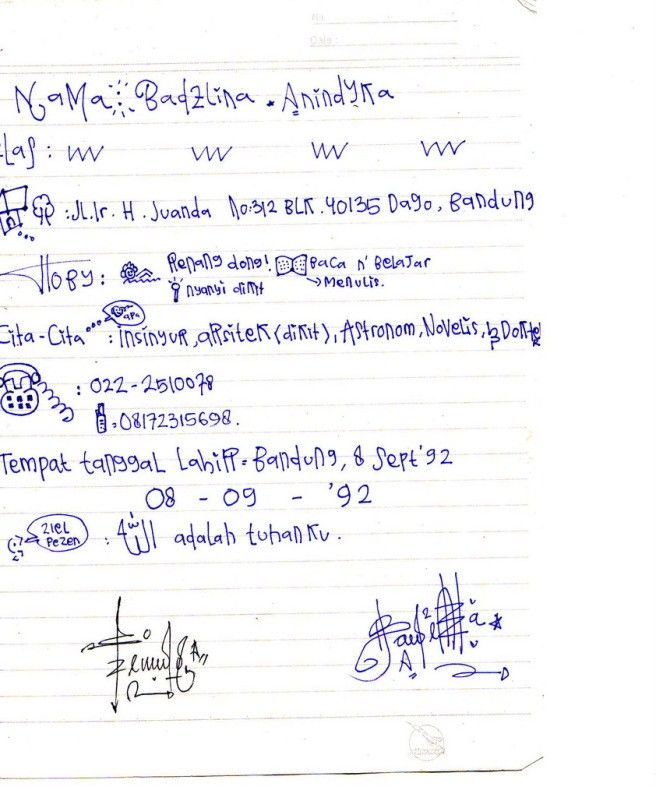 No.
Date:
NaMa : Badzlina . Anindyka
:
:Jl.Ir. H. Juanda No:312 BLK.40135 Dago, Bandung
HOBY : Renang dong! Baca n' BeLaJar
nyanyi dikit →MenuLis.
Cita-Cita : insinyur, arsitek (dikit), Astronom, NoveLis, Dokter
: 022-2510078
: 08172315698.
Tempat tanggaL Lahirr. Bandung, 8 Sept'92
08 - 09 - '92
ziel pezen : الله adalah tuhanku.